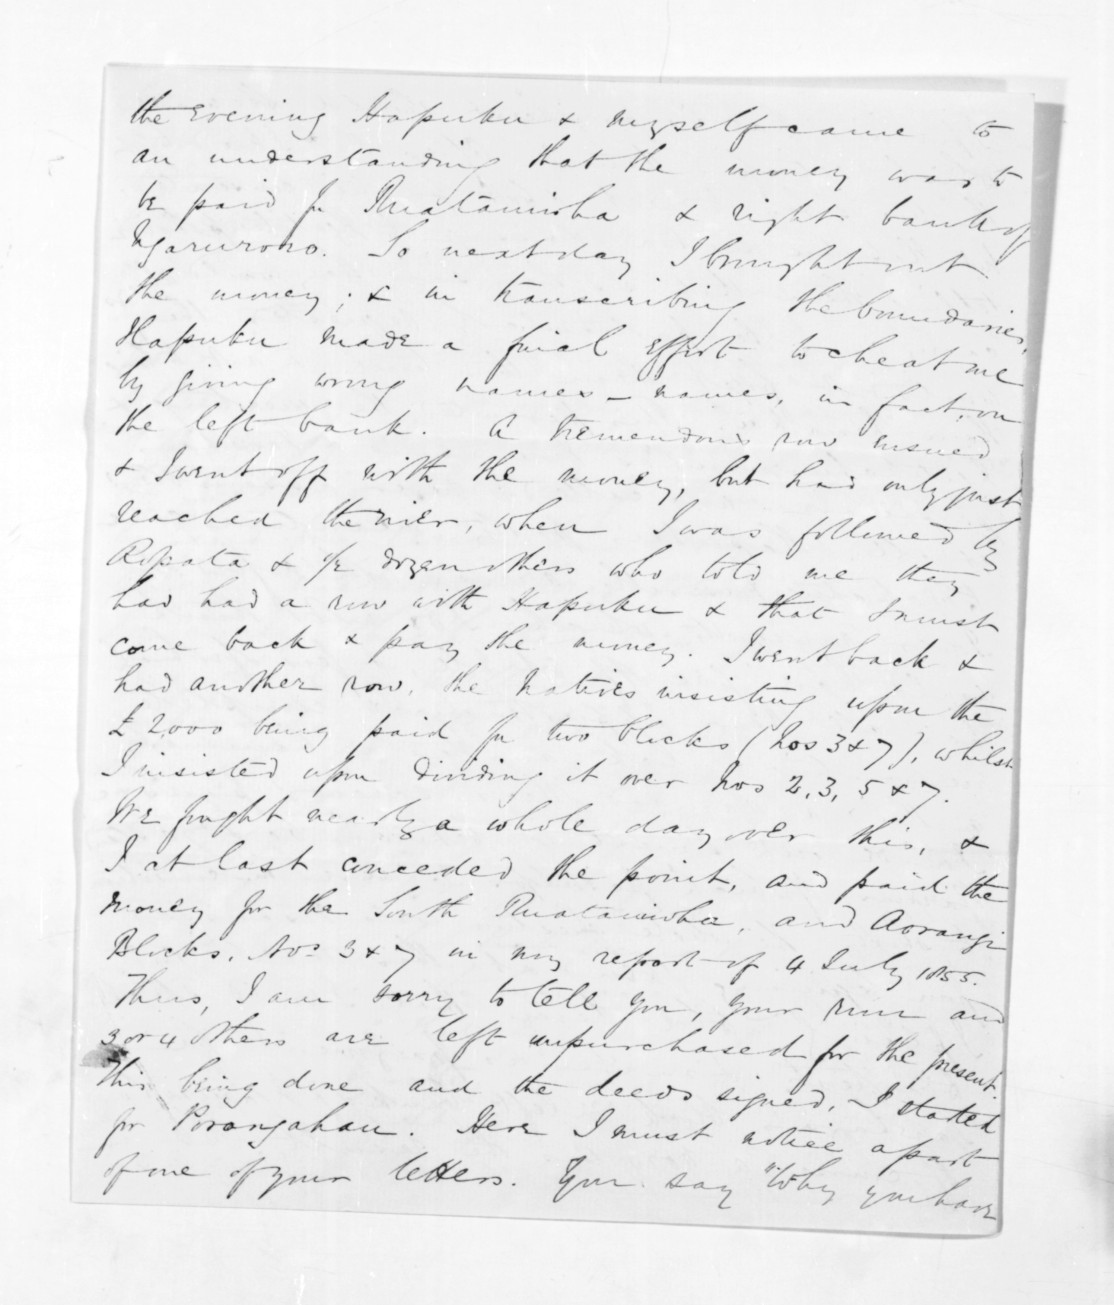 the evening Hapuku & myself came to
an understanding that the money was to
be paid for Ruataniwha & right bank of
Ngaruroro. So next day I brought out
the money; & in transcribing the boundaries,
Hapuku made a final effort to cheat me
by giving wrong names - names, in fact, on
the left bank. A tremendous row ensued
& I went off with the money, but had only just
reached the river, when I was followed by
Ropata & ½ dozen others who told me they
had had a row with Hapuku & that I must
come back & pay the money. I went back &
had another row, the natives insisting upon the
£2,000 being paid for two blocks (Nos 3 & 7), whilst
I insisted upon dividing it over Nos 2, 3, 5 & 7.
We fought nearly a whole day over this, &
I at last conceded the point, and paid the
money for the South Ruataniwha, and Aorangi
Blocks, Nos 3 & 7 in my report of 4 July 1855.
Thus, I am sorry to tell you, your run and
3 or 4 others are left unpurchased for the present.
This being done and the deeds signed, I started
for Porangahau. Here I must notice a part
of one of your letters. You say "Why you have